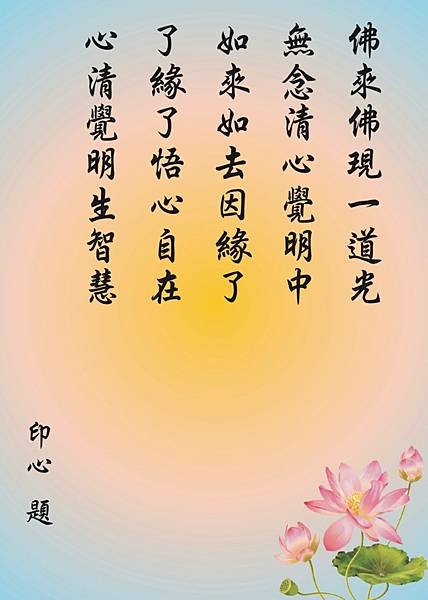 佛來佛現一道光
無念清心覺明中
如來如去因緣了
了緣了悟心自在
心清覺明生智慧
印心 題